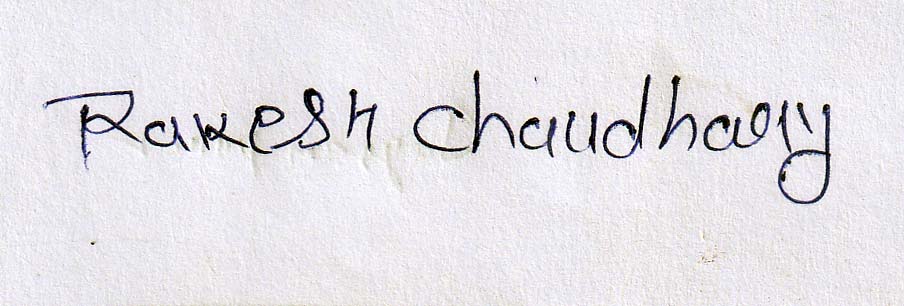 Rakesh Chaudhary